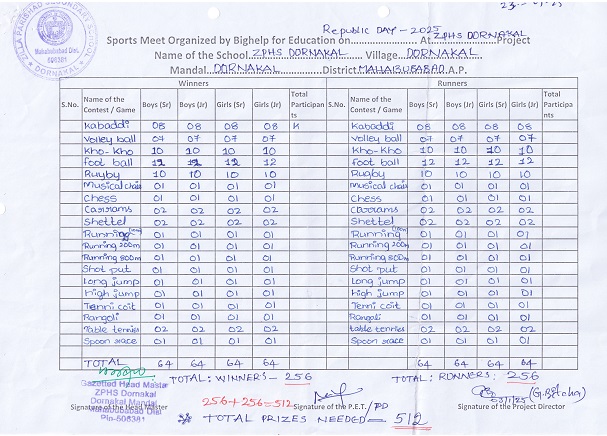 23-01-25
ZILLA PARISHAD SECONDARY SCHOOL
Mahabubabad Dist.
506381
DORNAKAL
Republic DAY - 2025
Sports Meet Organized by Bighelp for Education on............... At ZPHS DORNAKAL Project
Name of the School ZPHS DORNAKAL Village DORNAKAL
Mandal DORNAKAL District MAHABUBABAD A.P.
Winners Runners
S.No. Name of the Contest / Game Boys (Sr) Boys (Jr) Girls (Sr) Girls (Jr) Total Participants S.No. Name of the Contest / Game Boys (Sr) Boys (Jr) Girls (Sr) Girls (Jr) Total Participants
Kabaddi 08 08 08 08 K Kabaddi 08 08 08 08
Volley ball 07 07 07 07 Volley ball 07 07 07 07
Kho-Kho 10 10 10 10 Kho-Kho 10 10 10 10
Foot ball 12 12 12 12 Foot ball 12 12 12 12
Rugby 10 10 10 10 Rugby 10 10 10 10
Musical chair 01 01 01 01 Musical chair 01 01 01 01
Chess 01 01 01 01 Chess 01 01 01 01
Carrams 02 02 02 02 Carrams 02 02 02 02
Shettel 02 02 02 02 Shettel 02 02 02 02
Running 01 01 01 01 Running 01 01 01 01
Running 200m 01 01 01 01 Running 200m 01 01 01 01
Running 800m 01 01 01 01 Running 800m 01 01 01 01
Shot put 01 01 01 01 Shot put 01 01 01 01
Long jump 01 01 01 01 Long jump 01 01 01 01
High jump 01 01 01 01 High jump 01 01 01 01
Tenni coit 01 01 01 01 Tenni coit 01 01 01 01
Rangoli 01 01 01 01 Rangoli 01 01 01 01
Table tennies 02 02 02 02 table tennies 02 02 02 02
Spoon race 01 01 01 01 Spoon race 01 01 01 01
TOTAL 64 64 64 64 TOTAL 64 64 64 64
TOTAL: WINNERS - 256 TOTAL: RUNNERS: 256
Gazetted Head Master
ZPHS Dornakal
Dornakal Mandal
Mahabubabad Dist
Pin-506381
256+256=512
Signature of the Head Master Signature of the P.E.T. / PD Signature of the Project Director
TOTAL PRIZES NEEDED - 512